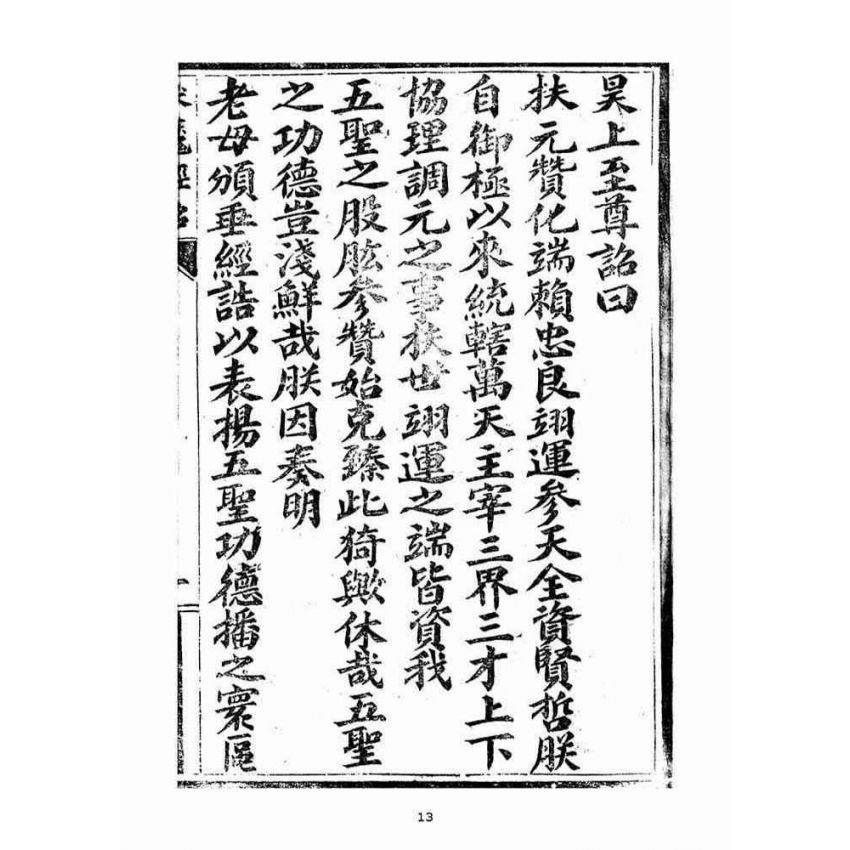 昊上至尊詔曰
扶元贊化端賴忠良翊運參天全資賢哲朕
自御極以來統轄萬天主宰三界三才上下
協理調元之事扶世翊運之端皆資我
五聖之股肱參贊始克臻此猗歟休哉五聖
之功德豈淺鮮哉朕因奏明
老母頒垂經誥以表揚五聖功德播之寰區
13